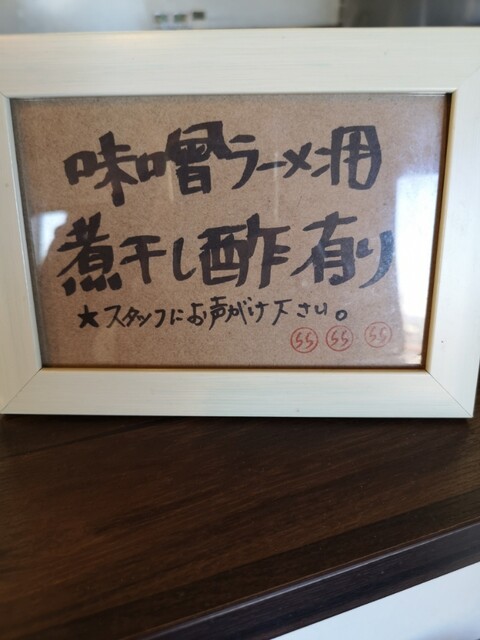 味噌ラーメン用
煮干し酢有り
★スタッフにお声がけ下さい。
SS SS SS